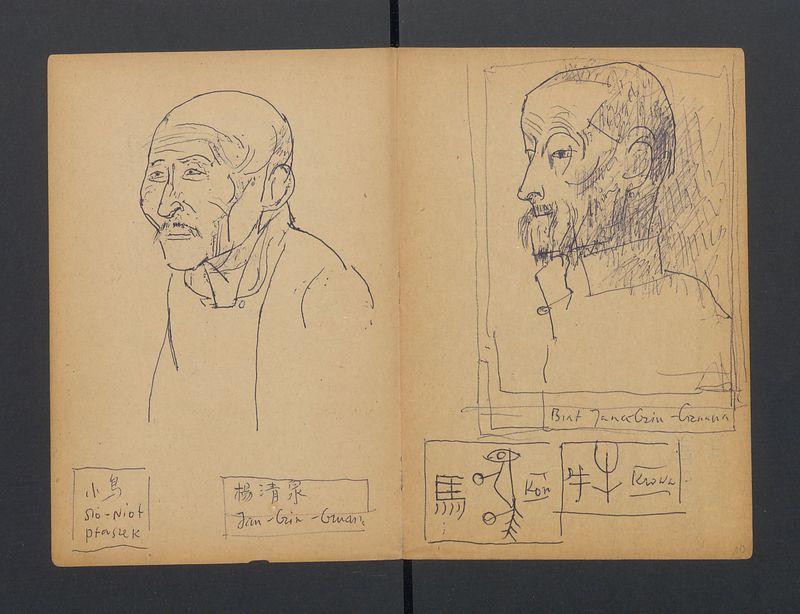 小鳥
Sio-Niot
ptaszek
楊清泉
Jan-Czin-Czuan
Brat Jana Czin-Czuana
馬
Koń
牛
Krowa